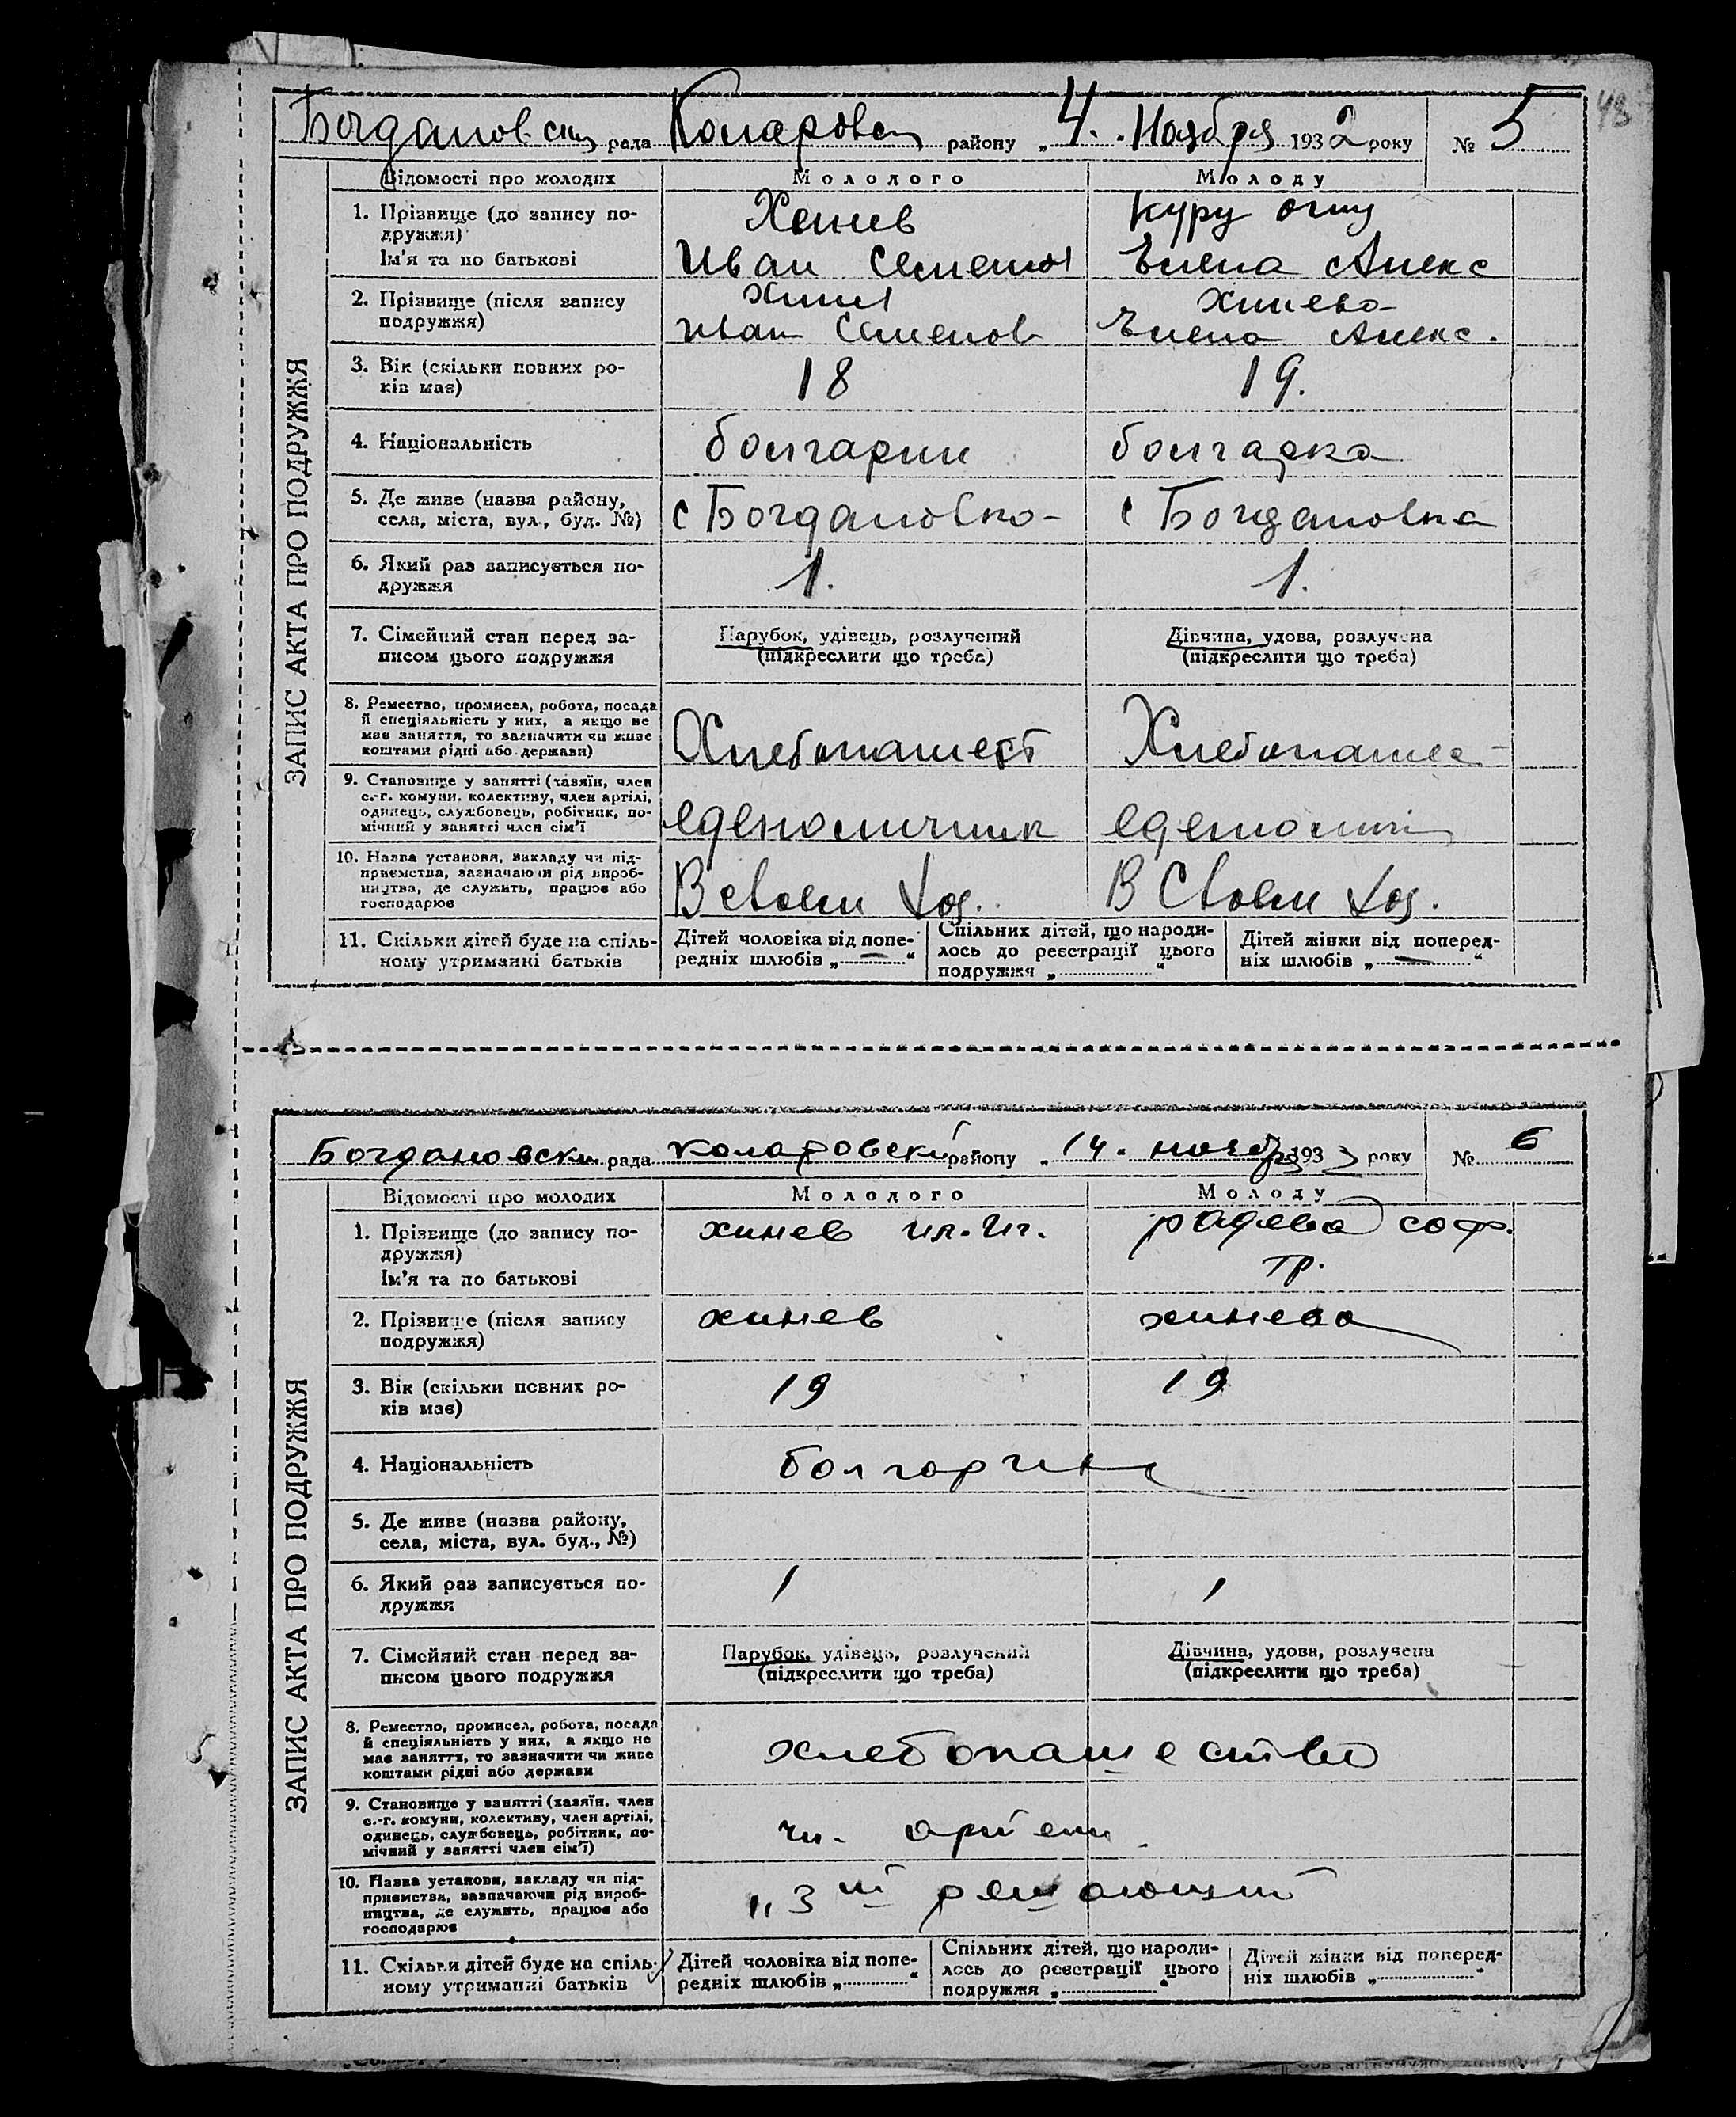 48
Богдановски рада Коларовск району „4." Ноября 1932 року № 5
ЗАПИС АКТА ПРО ПОДРУЖЖЯ
Відомості про молодих Молодого Молоду
1. Прізвище (до запису по- Хинев Куру оглу
дружжя)
Ім'я та по батькові Иван Семенов Елена Алекс
2. Прізвище (після запису Хинев Хинева
подружжя) Иван Семенов Елена Алекс.
3. Вік (скільки повних ро- 18 19.
ків має)
4. Національність болгарин болгарка
5. Де живе (назва району, с Богдановка с Богдановка
села, міста, вул., буд. №)
6. Який раз записується по- 1. 1.
дружжя
7. Сімейний стан перед за- Парубок, удівець, розлучений Дівчина, удова, розлучена
писом цього подружжя (підкреслити що треба) (підкреслити що треба)
8. Ремество, промисел, робота, посада
й спеціяльність у них, а якщо не
має заняття, то зазначити чи живе Хлебопашест Хлебопаше
коштами рідні або держави)
9. Становище у занятті (хазяїн, член
с.-г. комуни, колективу, член артілі,
одинець, службовець, робітник, по- еденоличник еденолич
мічний у занятті член сім'ї
10. Назва установи, закладу чи під-
приємства, зазначаючи рід вироб- В своем хоз. В Своем хоз.
ництва, де служить, працює або
господарює
11. Скільки дітей буде на спіль-
ному утриманні батьків
Дітей чоловіка від попе-
редніх шлюбів „ — "
Спільних дітей, що народи-
лось до реєстрації цього
подружжя „ "
Дітей жінки від поперед-
ніх шлюбів „ — "
Богдановски рада коларовски району „14. ноября 1933 року № 6
ЗАПИС АКТА ПРО ПОДРУЖЖЯ
Відомості про молодих Молодого Молоду
1. Прізвище (до запису по- хинев ил. Иг. радева соф.
дружжя) тр.
Ім'я та по батькові
2. Прізвище (після запису хинев хинева
подружжя)
3. Вік (скільки повних ро- 19 19
ків має)
4. Національність болгарине
5. Де живе (назва району,
села, міста, вул. буд., №)
6. Який раз записується по- 1 1
дружжя
7. Сімейний стан перед за- Парубок, удівець, розлучений Дівчина, удова, розлучена
писом цього подружжя (підкреслити що треба) (підкреслити що треба)
8. Ремество, промисел, робота, посада
й спеціяльність у них, а якщо не
має заняття, то зазначити чи живе хлебопашество
коштами рідні або держави
9. Становище у занятті (хазяїн, член
с.-г. комуни, колективу, член артілі,
одинець, службовець, робітник, по- чл. артели
мічний у занятті член сім'ї)
10. Назва установи, закладу чи під-
приємства, зазначаючи рід вироб- „3ий решающий
ництва, де служить, працює або
господарює
11. Скільки дітей буде на спіль-
ному утриманні батьків
Дітей чоловіка від попе-
редніх шлюбів „ "
Спільних дітей, що народи-
лось до реєстрації цього
подружжя „ "
Дітей жінки від поперед-
ніх шлюбів „ "